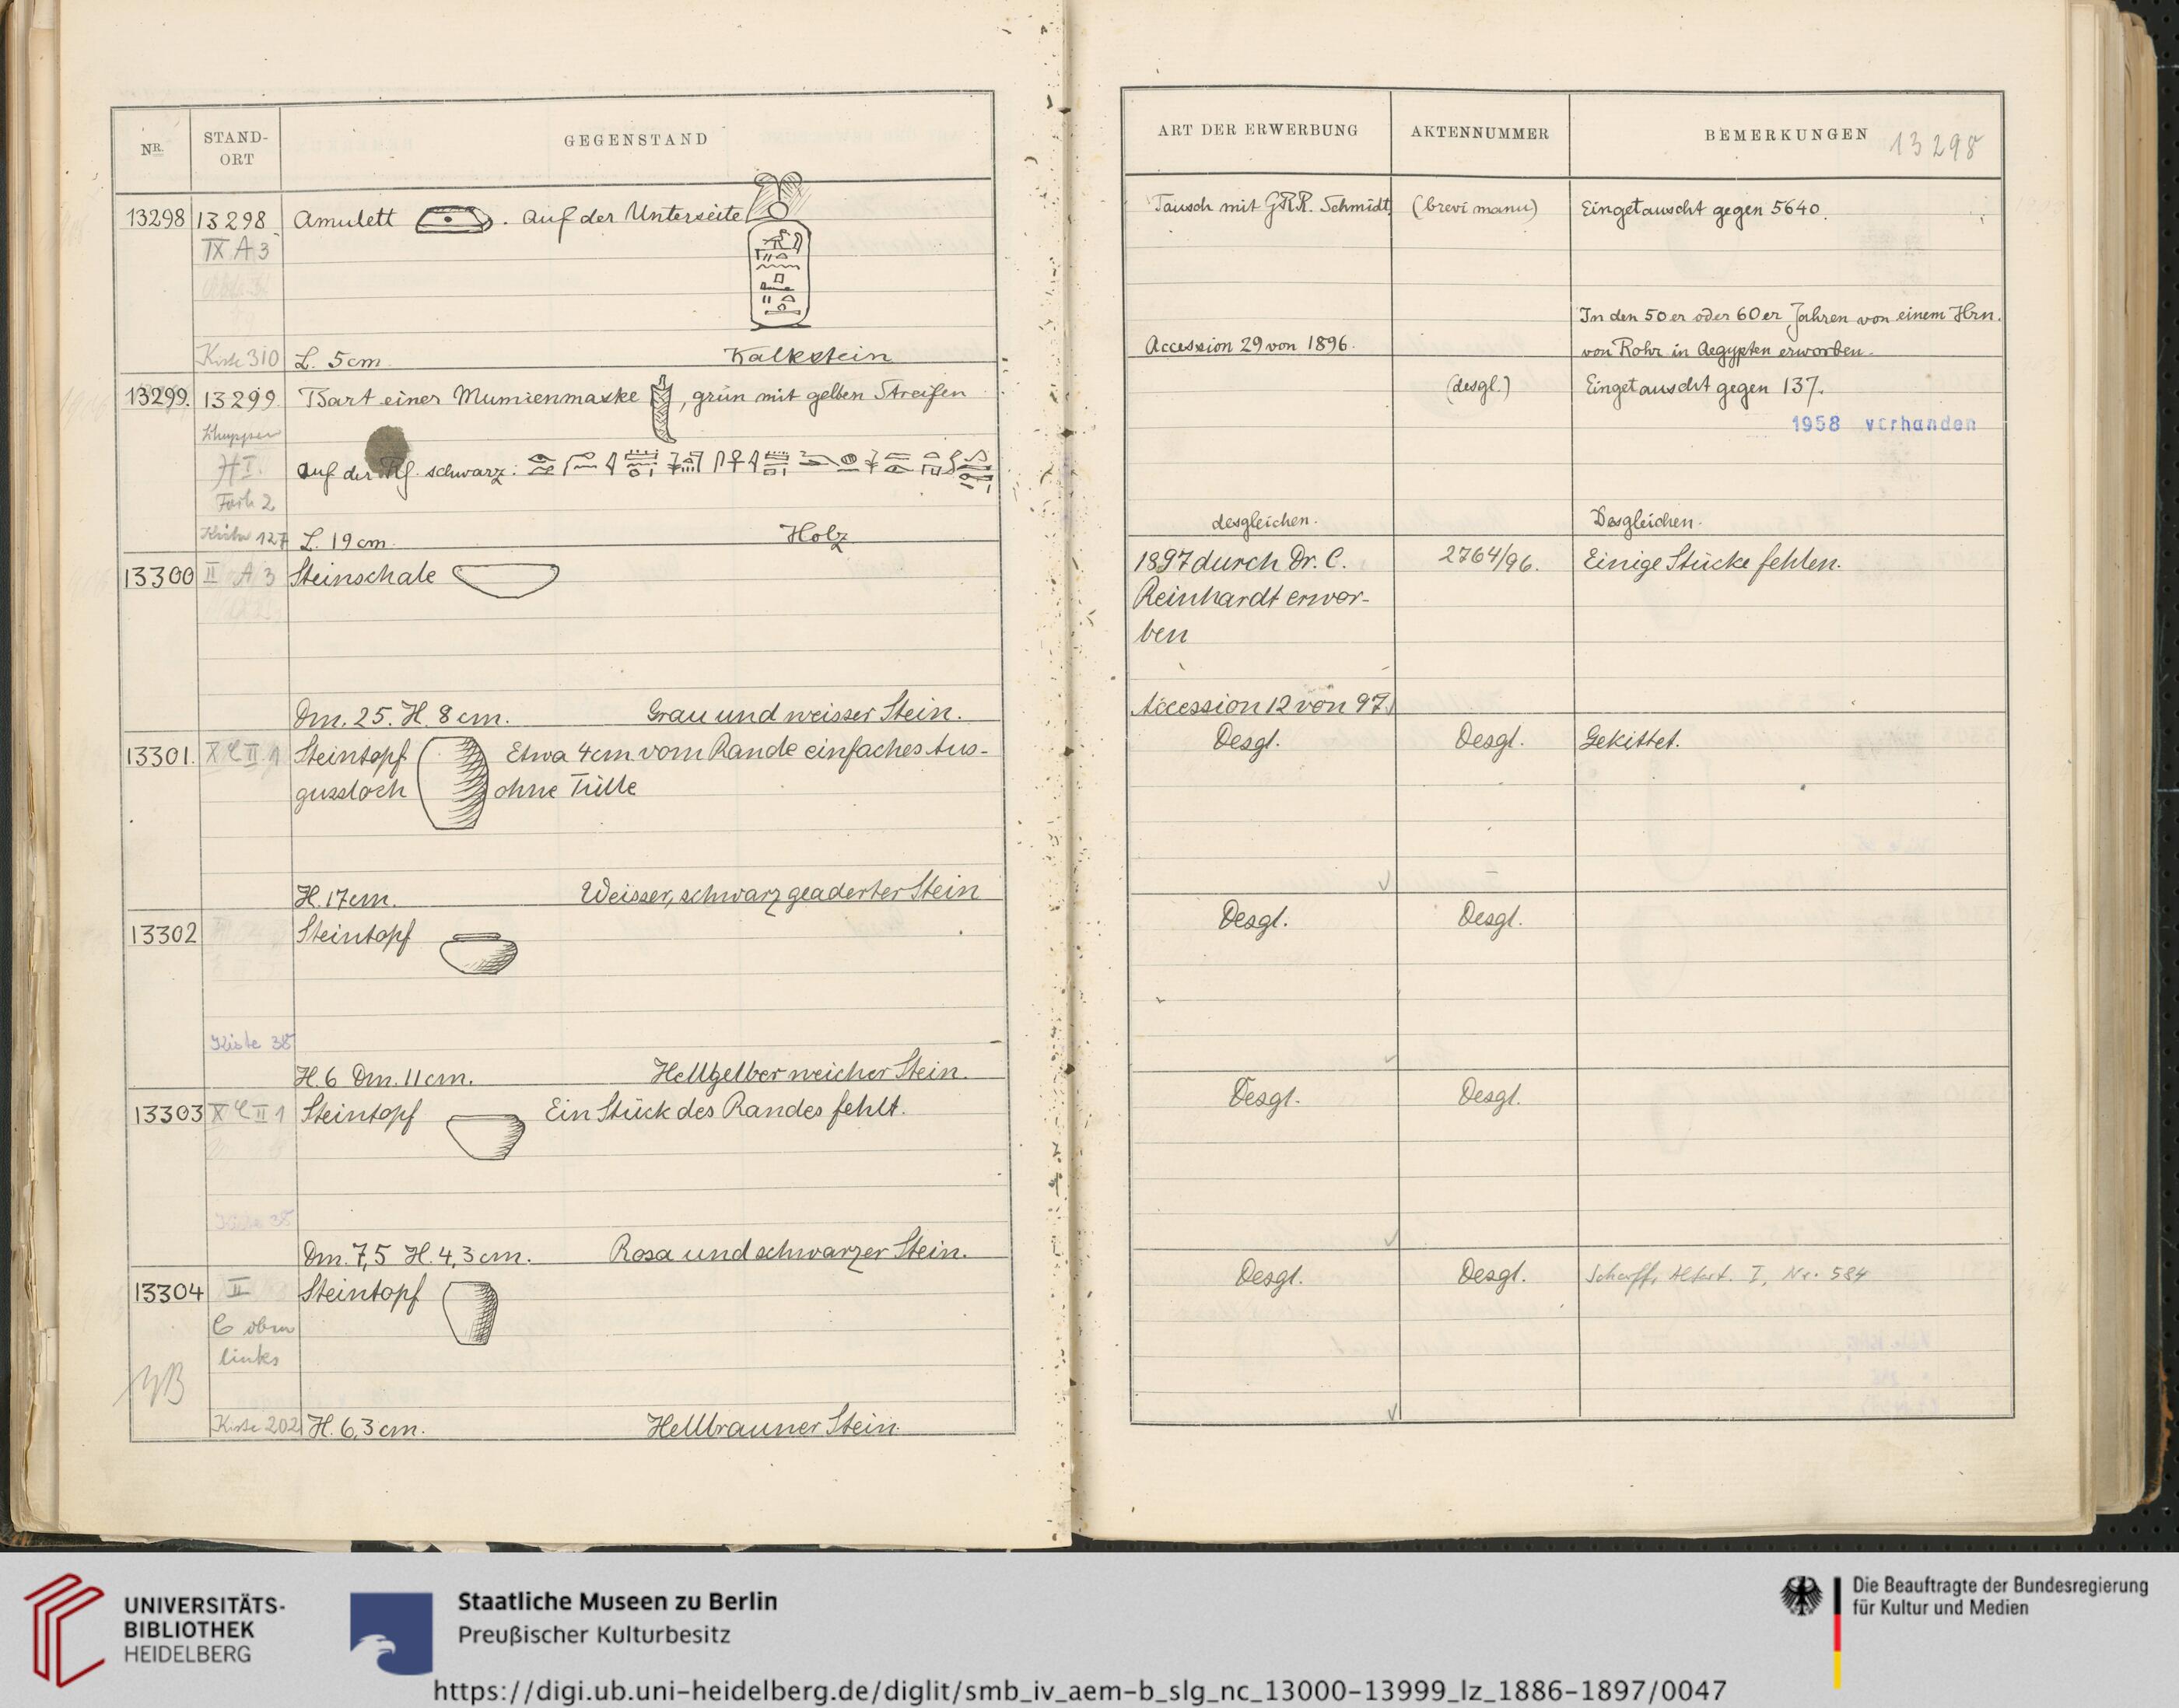 NR.
STAND-
ORT
GEGENSTAND
13298
13298
IX A 3
Kiste 310
Amulett . Auf der Unterseite
L. 5cm Kalkstein
13299.
13299
Fach 2
Kiste 127
Bart einer Mumienmaske , grün mit gelben Streifen
auf der Rf. schwarz:
L. 19cm. Holz
13300
II A 3
Steinschale
Dm. 25. H. 8cm. Grau und weisser Stein.
13301.
Steintopf Etwa 4cm vom Rande einfaches Aus-
gussloch ohne Tülle
H. 17cm. Weisser, schwarz geaderter Stein
13302
Kiste 38
Steintopf
H. 6 Dm. 11cm. Hellgelber weicher Stein.
13303
Steintopf Ein Stück des Randes fehlt.
Dm. 7,5 H. 4,3 cm. Rosa und schwarzer Stein.
13304
II
C oben
links
Kiste 202
Steintopf
H. 6,3 cm. Hellbrauner Stein.
ART DER ERWERBUNG
AKTENNUMMER
BEMERKUNGEN
13298
Tausch mit GRR. Schmidt (brevi manu) Eingetauscht gegen 5640.
In den 50er oder 60er Jahren von einem Hrn.
Accession 29 von 1896. von Rohr in Aegypten erworben.
(desgl.) Eingetauscht gegen 137.
1958 vorhanden
desgleichen. Desgleichen.
1897 durch Dr. C. 2764/96. Einige Stücke fehlen.
Reinhardt erwor-
ben
Accession 12 von 97.
Desgl. Desgl. Gekittet.
Desgl. Desgl.
Desgl. Desgl.
Desgl. Desgl. Scharff, Altert. I, Nr. 584
UNIVERSITÄTS-
BIBLIOTHEK
HEIDELBERG
Staatliche Museen zu Berlin
Preußischer Kulturbesitz
Die Beauftragte der Bundesregierung
für Kultur und Medien
https://digi.ub.uni-heidelberg.de/diglit/smb_iv_aem-b_slg_nc_13000-13999_lz_1886-1897/0047